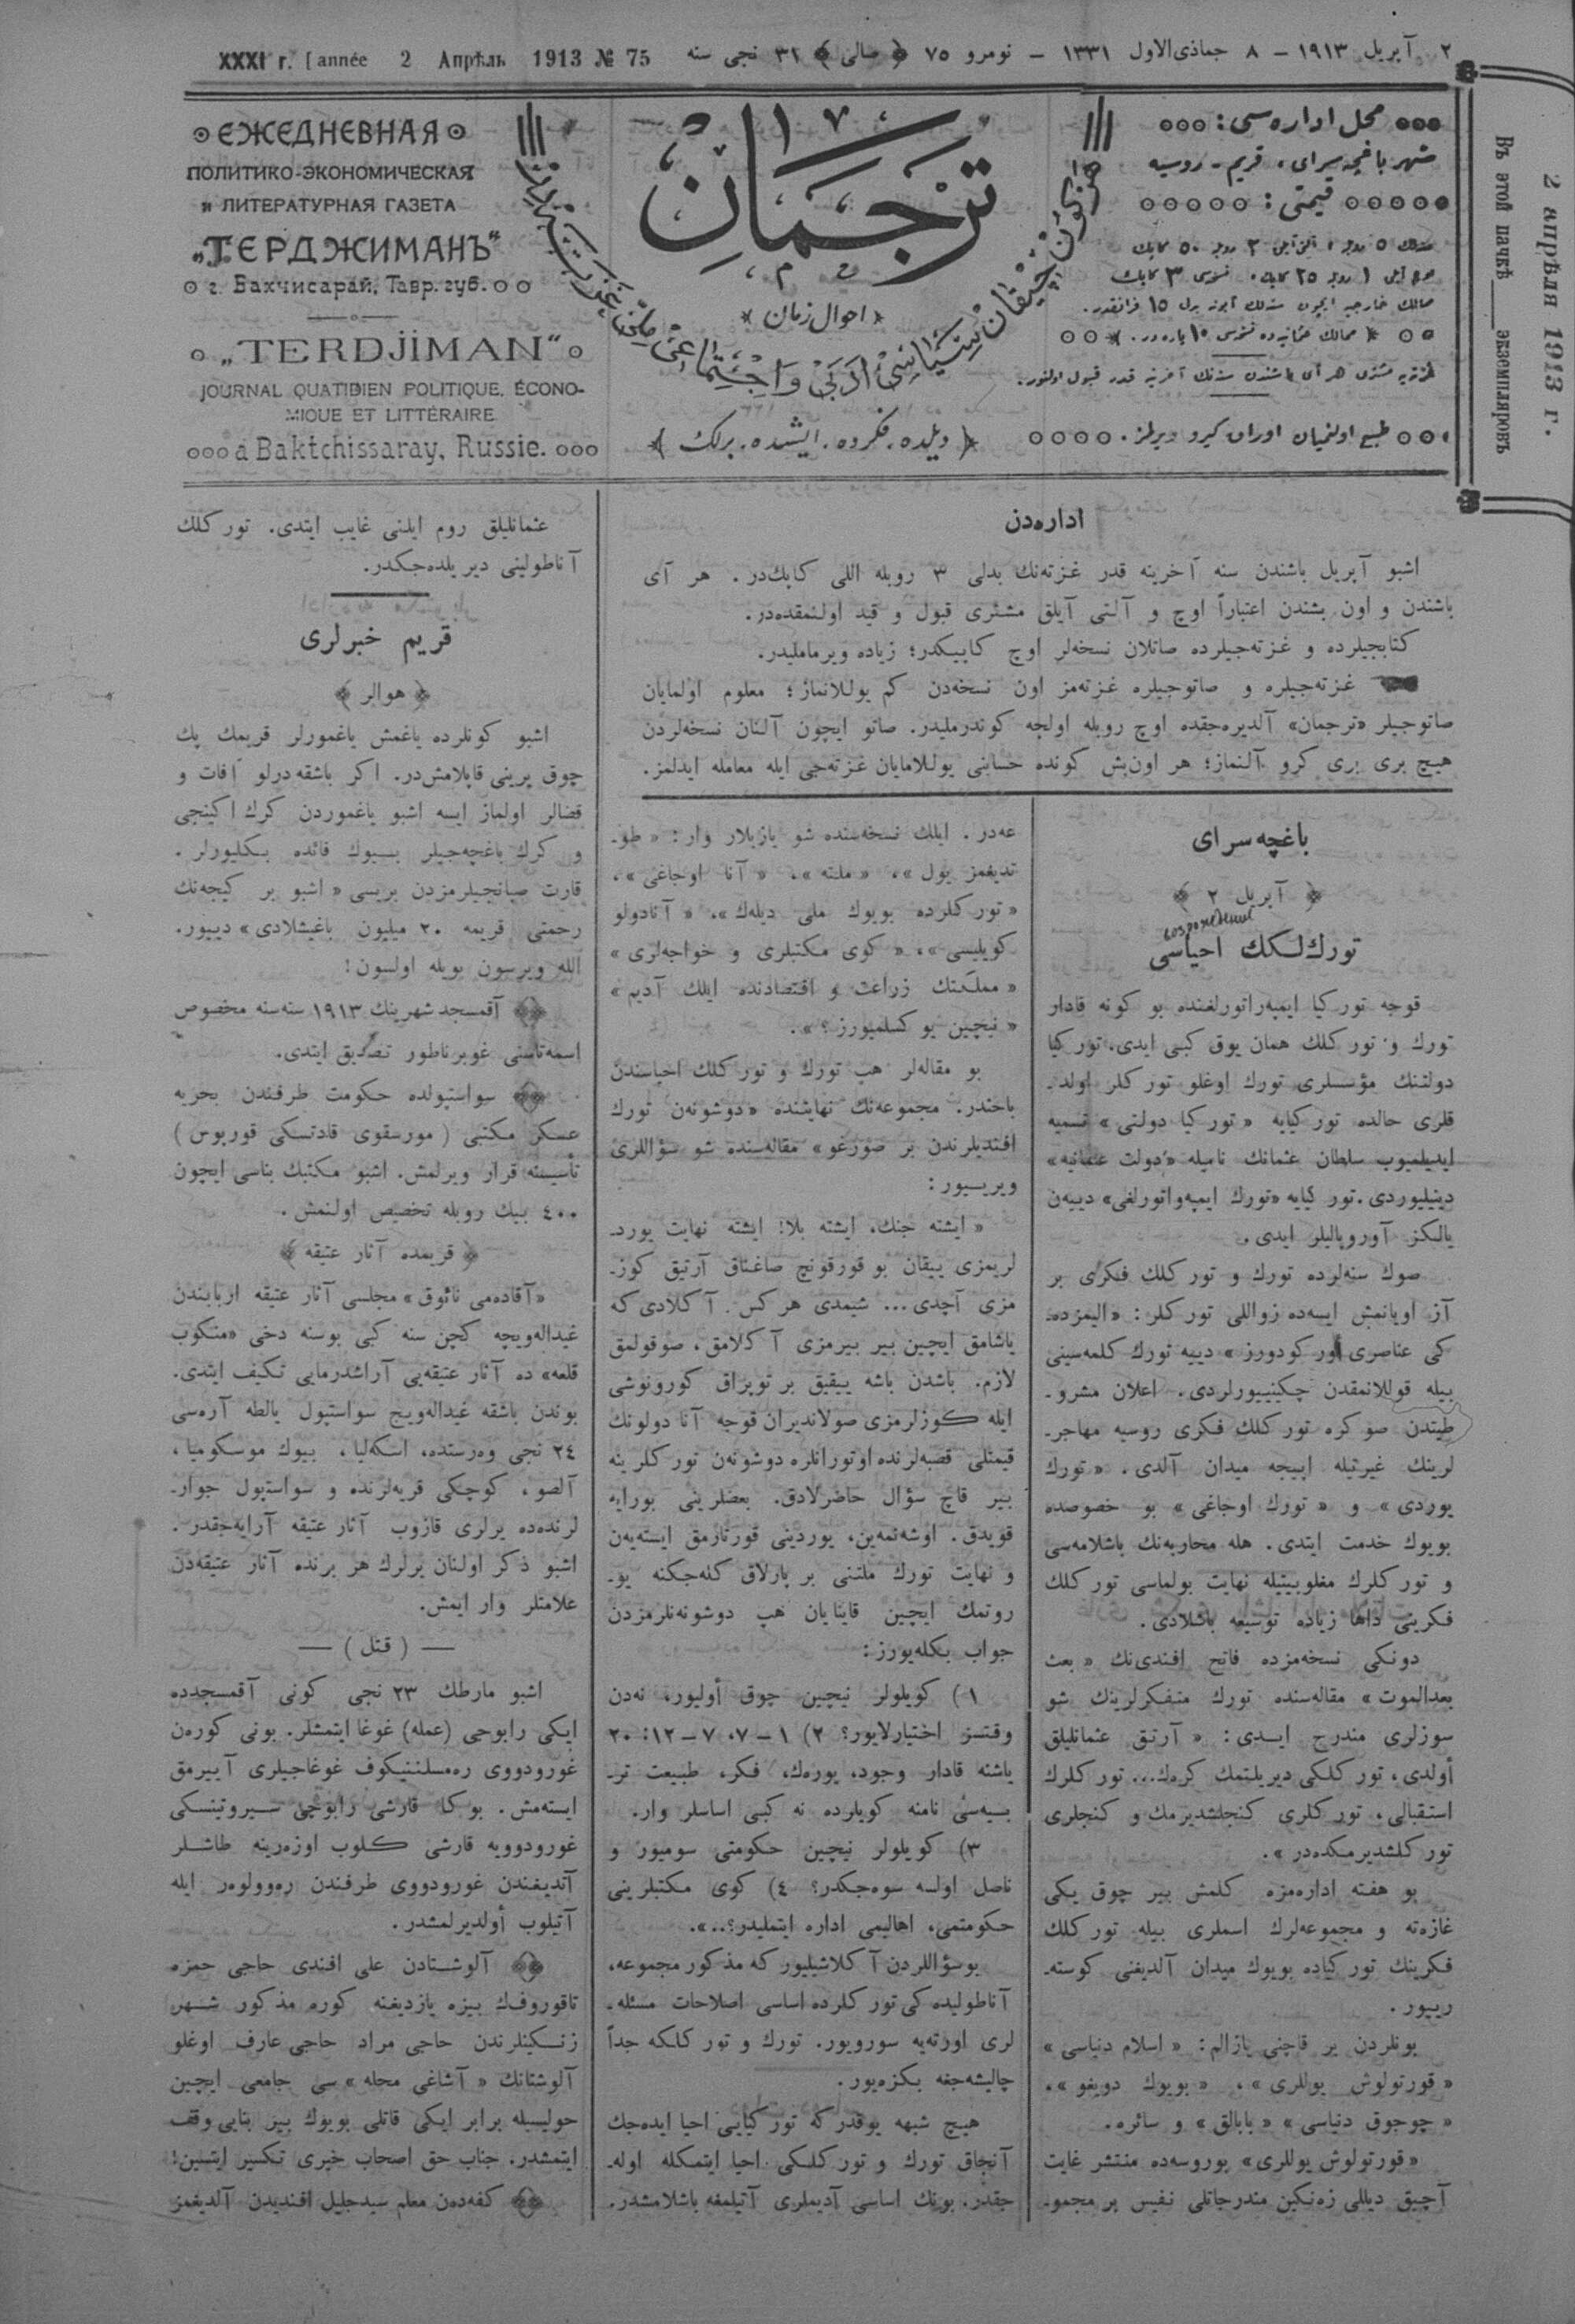 ٢ آپریل ١٩١٣ – ٨ جماذى الاول ١٣٣١ – نومرو ٧٥ ﴿ صالى ﴾ ٣١ نجى سنه
XXXI г. [année 2 Апрѣль 1913 № 75
2 апрѣля 1913 г.
Въ этой пачкѣ ____ экземпляровъ
ЕЖЕДНЕВНАЯ
ПОЛИТИКО-ЭКОНОМИЧЕСКАЯ
и ЛИТЕРАТУРНАЯ ГАЗЕТА
„ТЕРДЖИМАНЪ“
г. Бахчисарай, Тавр. губ.
„TERDJİMAN“
JOURNAL QUATIDIEN POLITIQUE, ÉCONO-
MIQUE ET LITTÉRAIRE
a Baktchissaray, Russie.
ترجمان
﴿ احوال زمان ﴾
﴿ دیلده، فکرده، ایشده، برلك ﴾
محل اداره‌سى:
شهر باغچه سراى، قریم ـ روسیه
قیمتى:
طبع اولنمیان اوراق کیرو ویرلمز.
اداره‌دن
اشبو آپریل باشندن سنه آخرینه قدر غزته‌نك بدلى ٣ روبله اللى کاپك‌در. هر آى
باشندن و اون بشندن اعتباراً اوچ و آلتى آیلق مشترى قبول و قید اولنمقده‌در.
کتابجیلرده و غزته‌جیلرده صاتلان نسخه‌لر اوچ کاپیکدر؛ زیاده ویرماملیدر.
غزته‌جیلره و صاتوجیلره غزته‌مز اون نسخه‌دن کم یوللانماز؛ معلوم اولمایان
صاتوجیلر «ترجمان» آلدیره‌جقده اوچ روبله اولجه کوندرملیدر. صاتو ایچون آلنان نسخه‌لردن
هیچ برى برى کرو آلنماز؛ هر اون‌بش کونده حسابنى یوللامایان غزته‌جى ایله معامله ایدلمز.
باغچه سراى
﴿ آپریل ٢ ﴾
تورك‌لکك احیاسى
قوجه تورکیا ایمپه‌راتورلغنده بو کونه قادار
تورك و تورکلك همان یوق کبى ایدى. تورکیا
دولتنك مؤسسلرى تورك اوغلو تورکلر اولد-
قلرى حالده تورکیایه «تورکیا دولتى» تسمیه
ایدیلمیوب سلطان عثمانك نامیله «دولت عثمانیه»
دینیلیوردى. تورکیایه «تورك ایمپه‌راتورلغى» دییه‌ن
یالکز آوروپالیلر ایدى.
صوك سنه‌لرده تورك و تورکلك فکرى بر
آز اویانمش ایسه‌ده زواللى تورکلر: «الیمزده-
کى عناصرى اورکودورز» دییه تورك کلمه‌سینى
بیله قوللانمقدن چکینییورلردى. اعلان مشرو-
طیتدن صوکره تورکلك فکرى روسیه مهاجر-
لرینك غیرتیله اپیجه میدان آلدى. «تورك
یوردى» و «تورك اوجاغى» بو خصوصده
بویوك خدمت ایتدى. هله محاربه‌نك باشلامه‌سى
و تورکلرك مغلوبیتیله نهایت بولماسى تورکلك
فکرینى داها زیاده توسیعه باشلادى.
دونکى نسخه‌مزده فاتح افندى‌نك «بعث
بعدالموت» مقاله‌سنده تورك متفکرلرینك شو
سوزلرى مندرج ایدى: «آرتق عثمانلیلق
أولدى، تورکلکى دیریلتمك کره‌ك... تورکلرك
استقبالى، تورکلرى کنجلشدیرمك و کنجلرى
تورکلشدیرمکده‌در».
بو هفته اداره‌مزه کلمش بیر چوق یکى
غازه‌ته و مجموعه‌لرك اسملرى بیله تورکلك
فکرینك تورکیاده بویوك میدان آلدیغنى کوسته-
رییور.
بونلردن بر قاچنى یازالم: «اسلام دنیاسى»
«قورتولوش یوللرى»، «بویوك دویغو»،
«چوجوق دنیاسى» «یابالق» و سائره.
«قورتولوش یوللرى» بوروسه‌ده منتشر غایت
آچیق دیللى زه‌نکین مندرجاتلى نفیس بر مجمو-
عه‌در. ایلك نسخه‌سنده شو یازیلار وار: «طو-
تدیغمز یول»، «ملته»، «آنا اوجاغى»،
«تورکلرده بویوك ملى دیله‌ك»، «آنادولو
کویلیسى»، «کوى مکتبلرى و خواجه‌لرى»
«مملکتك زراعت و اقتصادنده ایلك آدیم»
«نیچین یوکسلمیورز؟».
بو مقاله‌لر هپ تورك و تورکلك احیاسندن
باحثدر. مجموعه‌نك نهایتنده «دوشونه‌ن تورك
افندیلرندن بر صورغو» مقاله‌سنده شو سؤاللرى
ویریییور:
«ایشته جنك، ایشته بلا! ایشته نهایت یورد-
لریمزى ییقان بو قورقونچ صاغناق آرتیق کوز-
مزى آچدى... شیمدى هرکس آکلادى که
یاشامق ایچین بیر بیرمزى آکلامق، صوقولمق
لازم. باشدن باشه ییقیق بر توپراق کورونوشى
ایله کوزلرمزى صولاندیران قوجه آنا دولونك
قیمتلى قصبه‌لرنده اوتورانلره دوشونه‌ن تورکلرینه
بیر قاچ سؤال حاضرلادق. بعضلرینى بورایه
قویدق. اوشه‌نمه‌ین، یوردینى قورتارمق ایسته‌یه‌ن
و نهایت تورك ملتنى بر پارلاق کله‌جکنه یو-
روتمك ایچین قاینایان هپ دوشونه‌نلرمزدن
جواب بکله‌یورز:
١) کویلولر نیچین چوق أولیور، نه‌دن
وقتسز اختیارلایور؟ ٢) ١–٧، ٧–١٢؛ ٢٠
یاشنه قادار وجود، یوره‌ك، فکر، طبیعت تر-
بیه‌سى نامنه کویلرده نه کبى اساسلر وار.
٣) کویلولر نیچین حکومتى سومیور و
ناصل اولسه سوه‌جکدر؟ ٤) کوى مکتبلرینى
حکومتمى، اهالیمى اداره ایتملیدر؟..».
بوسؤاللردن آکلاشیلیور که مذکور مجموعه،
آناطولیده‌کى تورکلرده اساسى اصلاحات مسئله-
لرى اورته‌یه سورویور. تورك و تورکلکه جداً
چالیشه‌جغه بکزه‌یور.
هیچ شبهه یوقدرکه تورکیایى احیا ایده‌جك
آنجاق تورك و تورکلکى احیا ایتمکله اوله-
جقدر. بونك اساسى آدیملرى آتیلمغه باشلامشدر.
عثمانلیلق روم ایلنى غایب ایتدى. تورکلك
آناطولینى دیریلده‌جکدر.
قریم خبرلرى
﴿ هوالر ﴾
اشبو کونلرده یاغمش یاغمورلر قریمك پك
چوق یرینى قاپلامش‌در. اکر باشقه درلو آفات و
قضالر اولماز ایسه اشبو یاغموردن کرك اکینجى
و کرك باغچه‌جیلر بیوك فائده بکلیورلر.
قارت صبانجیلرمزدن بریسى «اشبو بر کیجه‌نك
رحمتى قریمه ٢٠ میلیون باغیشلادى» دییور.
الله ویرسون بویله اولسون!
آقمسجد شهرینك ١٩١٣ سنه‌سنه مخصوص
اسمه‌تاسنى غوبرناطور تصدیق ایتدى.
سواستپولده حکومت طرفندن بحریه
عسکر مکتبى (مورسقوى قادتسکى قورپوس)
تأسیسنه قرار ویرلمش. اشبو مکتبك بناسى ایچون
٤٠٠ بیك روبله تخصیص اولنمش.
﴿ قریمده آثار عتیقه ﴾
«آقاده‌مى نائوق» مجلسى آثار عتیقه اربابندن
غیداله‌ویچه کچن سنه کبى بوسنه دخى «منکوب
قلعه» ده آثار عتیقه‌یى آراشدرمایى تکلیف ایتدى.
بوندن باشقه غیداله‌ویچ سواستپول یالطه آره‌سى
٢٤ نجى وه‌رستده، اسکه‌لیا، بیوك موسکومیا،
آلصو، کوچکى قریه‌لرنده و سواستپول جوار-
لرنده‌ده یرلرى قازوب آثار عتیقه آرایه‌جقدر.
اشبو ذکر اولنان یرلرك هر برنده آثار عتیقه‌دن
علامتلر وار ایمش.
— ( قتل ) —
اشبو مارطك ٢٣ نجى کونى آقمسجدده
ایکى رابوچى (عمله) غوغا ایتمشلر. بونى کوره‌ن
غورودووى ره‌مسلنیکوف غوغاجیلرى آییرمق
ایسته‌مش. بوکا قارشى رابوچى سیروتینسکى
غورودوویه قارشى کلوب اوزه‌رینه طاشلر
آتدیغندن غورودووى طرفندن ره‌وولوه‌ر ایله
آتیلوب أولدیرلمشدر.
آلوشتادن على افندى حاجى حمزه
تاقوروف‌ك بیزه یازدیغنه کوره مذکور شهر
زنکینلرندن حاجى مراد حاجى عارف اوغلو
آلوشتانك «آشاغى محله» سى جامعى ایچین
حولیسیله برابر ایکى قاتلى بویوك بیر بنایى وقف
ایتمشدر. جناب حق اصحاب خیرى تکسیر ایتسین!
کفه‌دن معلم سیدجلیل افندیدن آلدیغمز